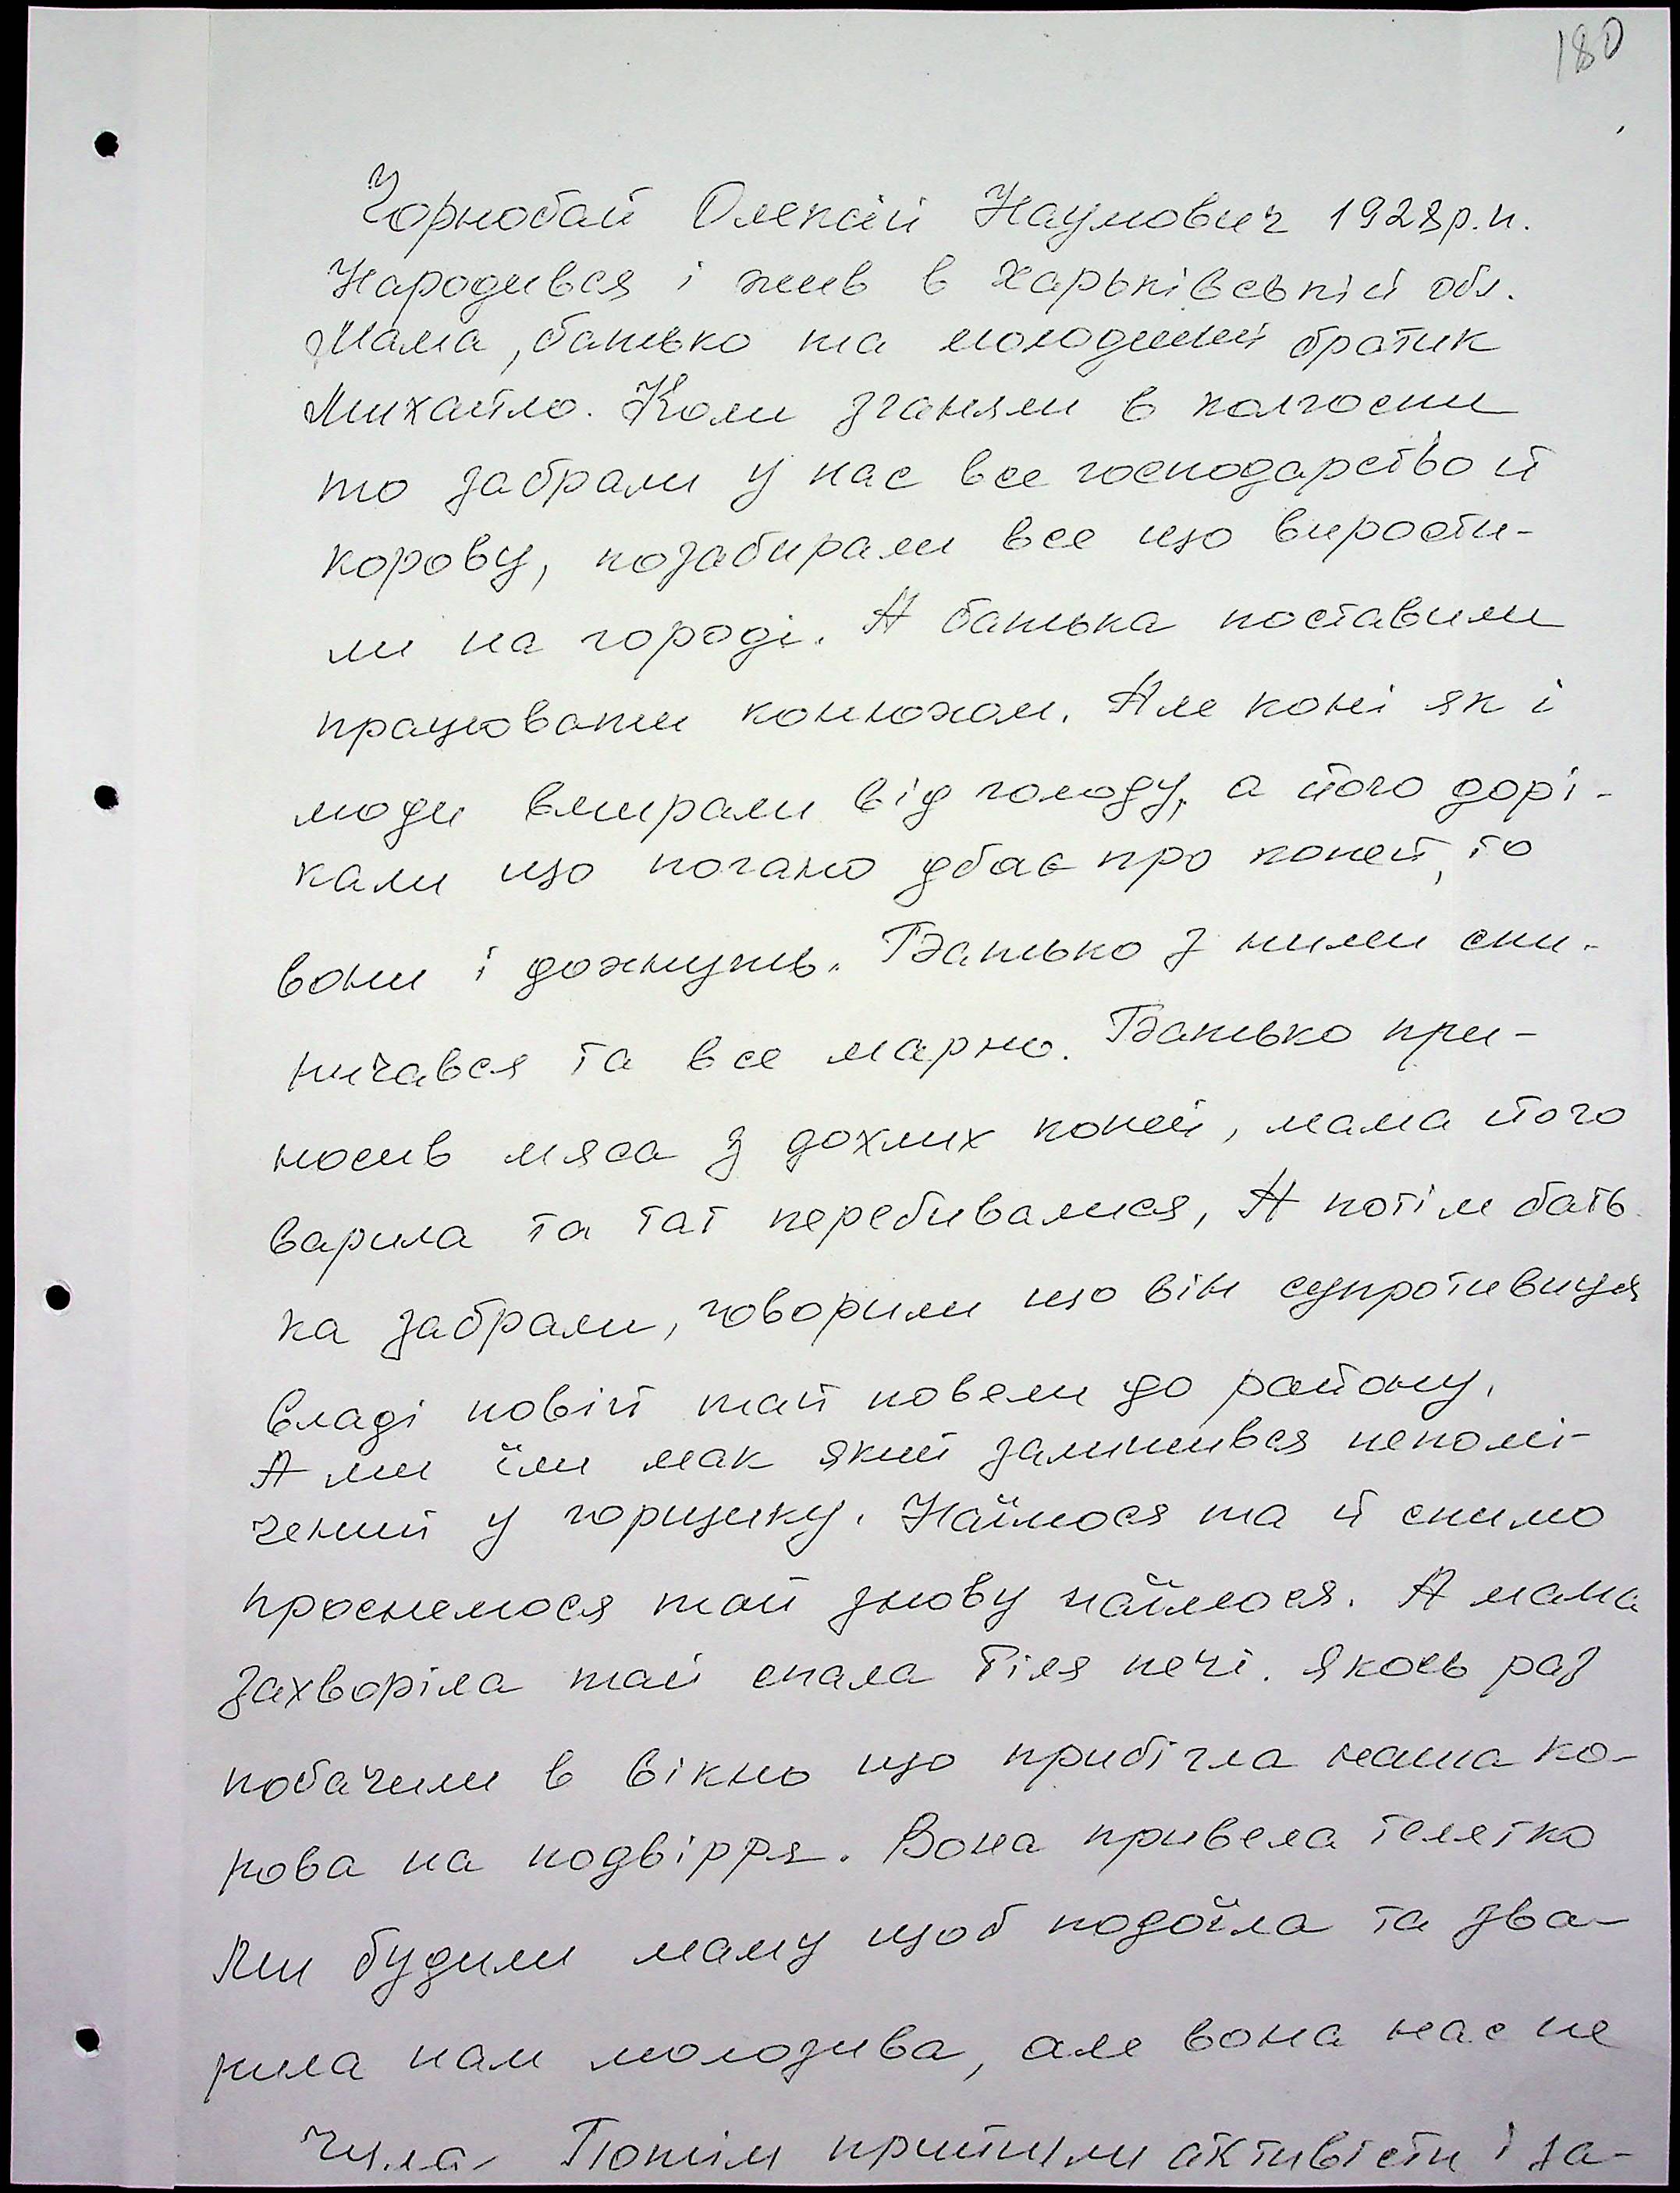 180
Чорнобай Олексій Наумович 1928р.н.
Народився і жив в Харьківській обл.
Мама, батько та молодший братик
Михайло. Коли зганяли в колгоспи
то забрали у нас все господарство й
корову, позабирали все що вирости-
ли на городі. А батька поставили
працювати конюхом. Але коні як і
люди вмирали від голоду, а його дорі-
кали що погано дбає про коней, то
вони і дохнуть. Батько з ними спи-
ничався та все марно. Батько при-
носив мяса з дохлих коней, мама його
варила та таг перебивалися, А потім бать
ка забрали, говорили що він супротивиця
владі новій тай повели до району.
А ми їли мак який залишився непомі-
чений у горщику. Наїмося та й спимо
проснемося тай знову наїмося. А мама
захворіла тай спала біля печі. Якось раз
побачили в вікно що прибігла наша ко-
рова на подвірря. Вона привела телятко
Ми будили маму щоб подоїла та зва-
рила нам молозива, але вона нас не
чула. Потім прийшли активісти і за-